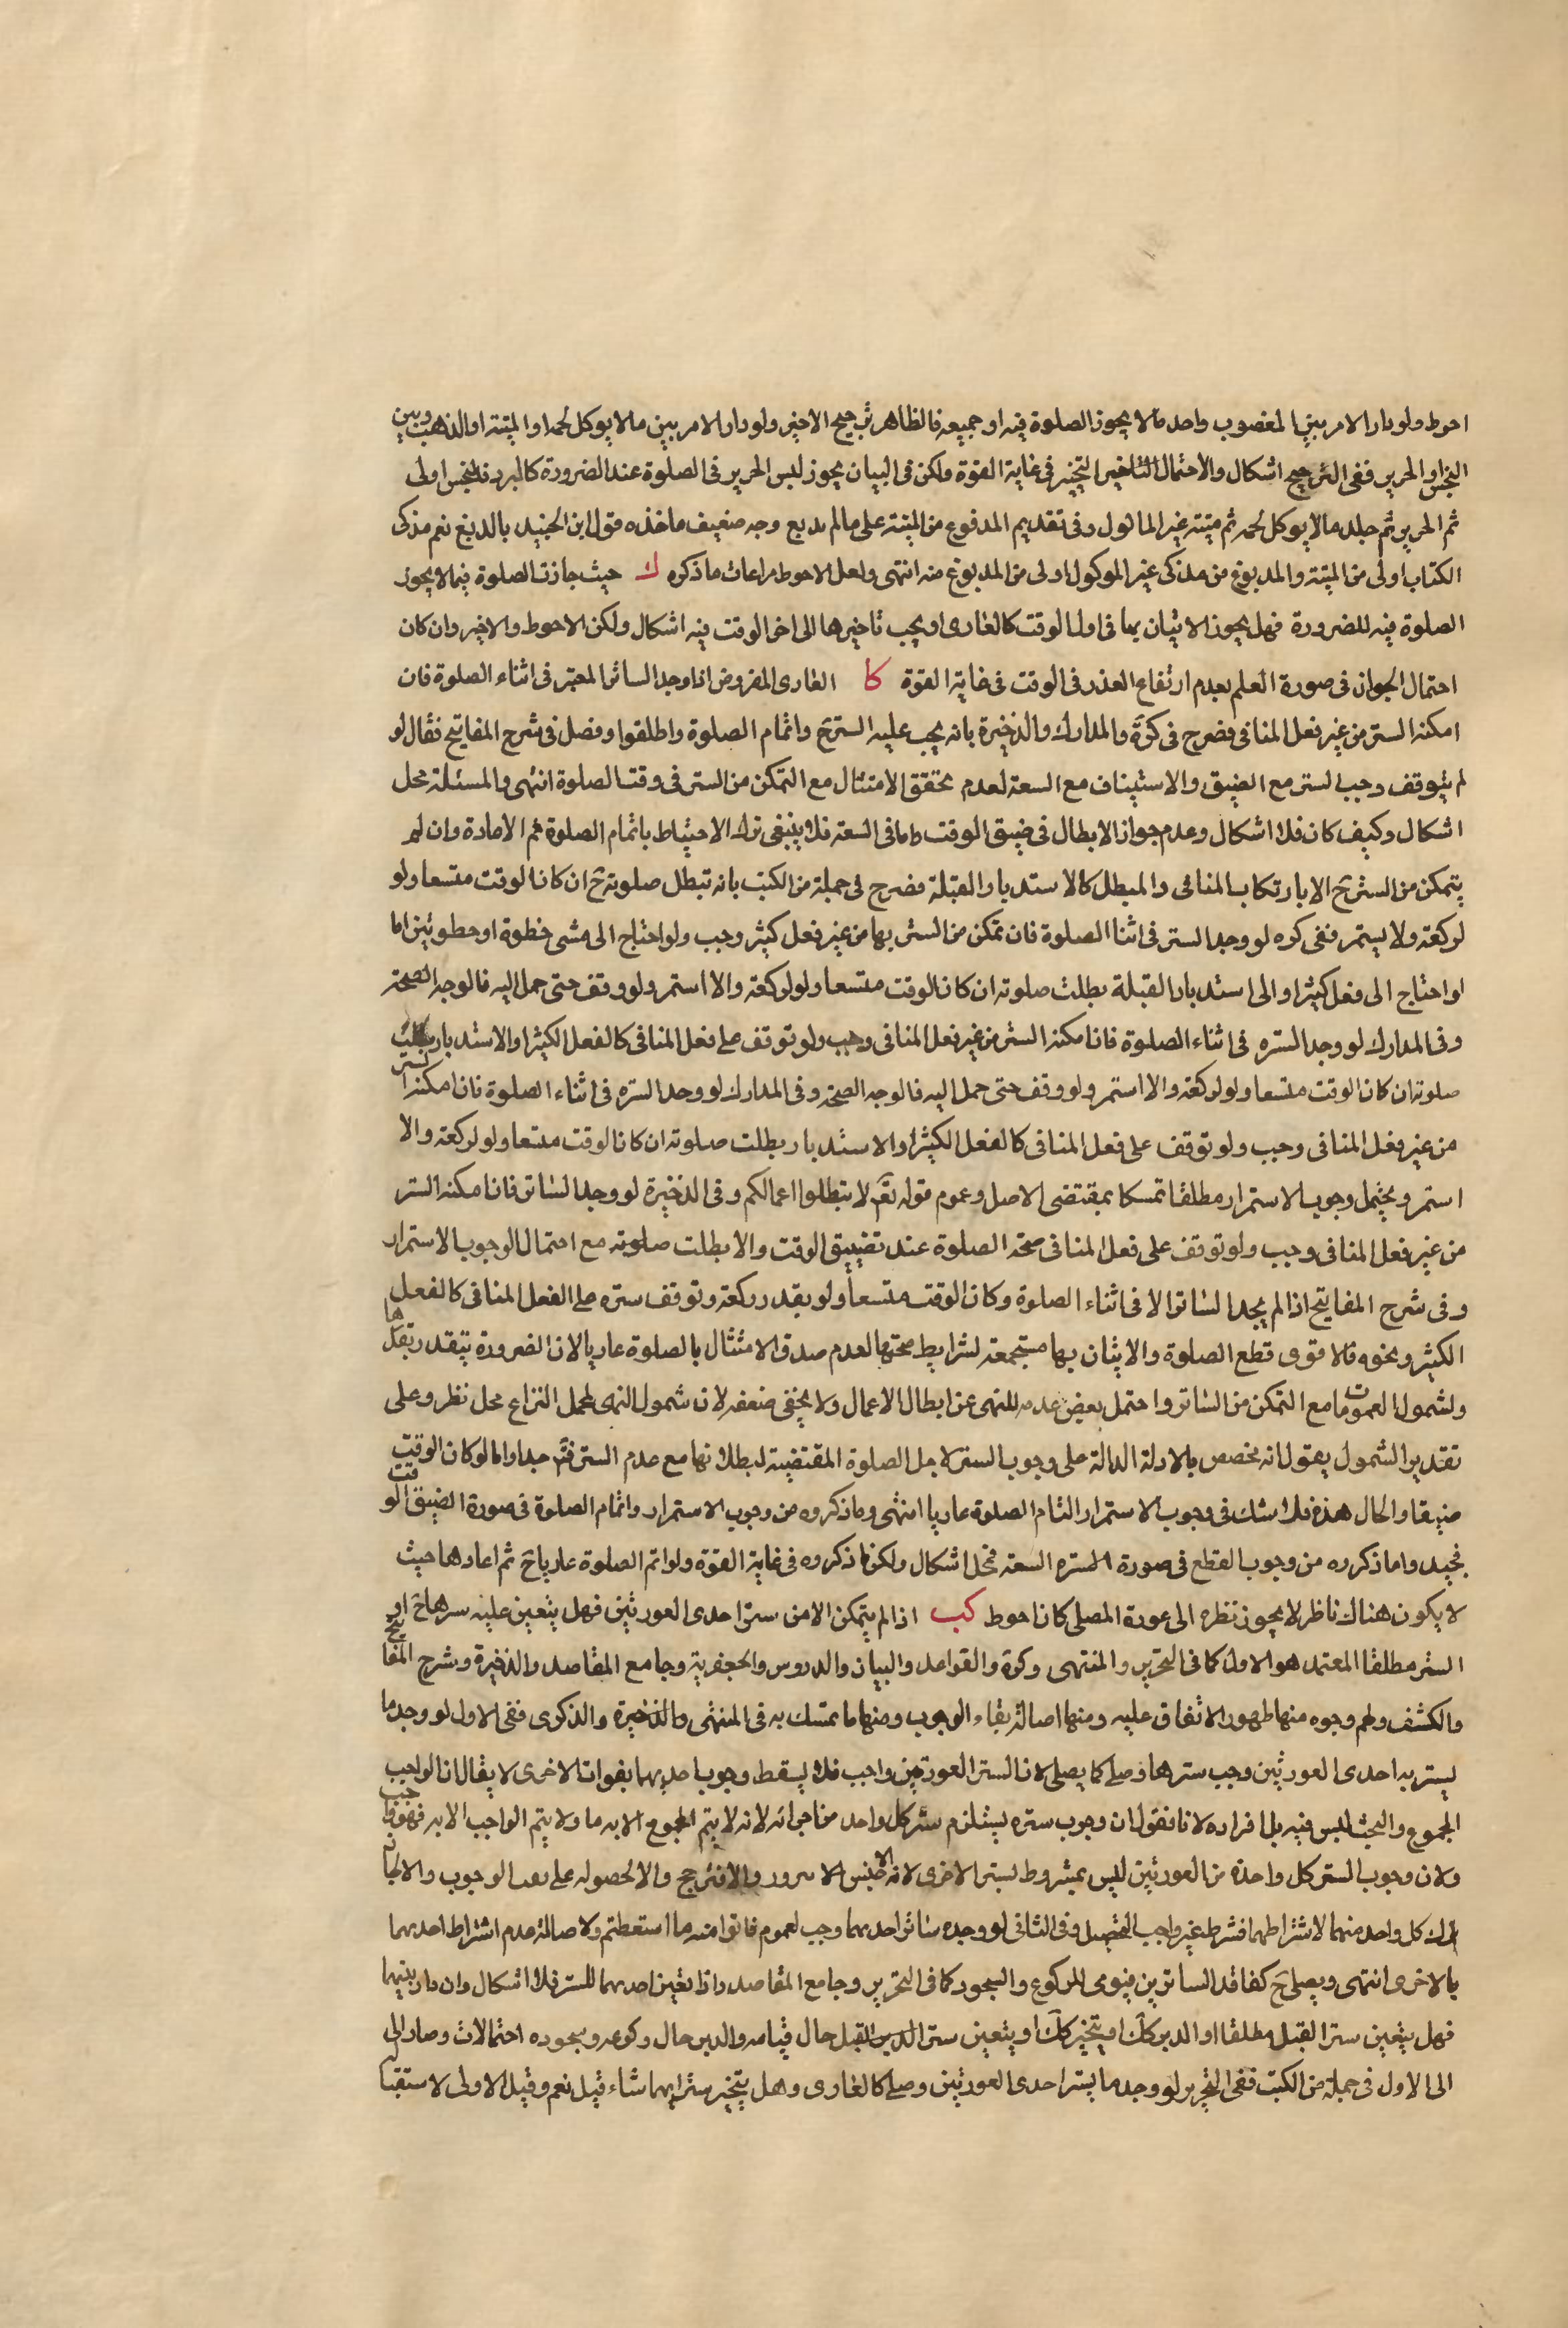 احوط ولو دار الامر بين المغصوب واحد مما لا يجوز الصلوة فيه او جميعه فالظاهر ترجيح الاخير ولو دار الامر بين ما لا يوكل لحمه او الميتة او الذهب وبين
النجس او الحرير ففى الترجيح اشكال والاحتمال التخيير فى غاية القوة ولكن فى البيان يجوز لبس الحرير فى الصلوة عند الضرورة كالبرد فالنجس اولى
ثم الحرير ثم جلد ما لا يوكل لحمه ثم ميتته غير الماكول وفى تقديم المدفوع من الميتة على ما لم يدبع وجه ضعيف ماخذه قول ابن الجنيد بالدبغ نعم مذكى
الكتاب اولى من الميتة والمدبوغ من مذكى غير الموكول اولى من المدبوغ منه انتهى ولعل الاحوط مراعات ما ذكره ك حيث جازت الصلوة فيما لا يجوز
الصلوة فيه للضرورة فهل يجوز الاتيان بها فى اول الوقت كالعارى او يجب تاخيرها الى اخر الوقت فيه اشكال ولكن الاحوط والاخير وان كان
احتمال الجواز فى صورة العلم بعدم ارتفاع العذر فى الوقت فى غاية القوة كا العارى المفروض اذا وجد الساتر المعتبر فى اثناء الصلوة فان
امكنه الستر من غير فعل المنافى فصرح فى كرة والمدارك والذخيرة بانه يجب عليه الستر ح واتمام الصلوة واطلقوا وفصل فى شرح المفاتيح فقال لو
لم يتوقف وجب لستر مع الضيق والاستيناف مع السعة لعدم تحقق الامتثال مع التمكن من الستر فى وقت الصلوة انتهى والمسئلة محل
اشكال وكيف كان فلا اشكال وعدم جواز الابطال فى ضيق الوقت واما فى السعة فلا ينبغى ترك الاحتياط باتمام الصلوة ثم الاعادة وان لم
يتمكن من الستر ح الا بارتكاب المنافى والمبطل كالاستدبار والقبلة فصرح فى جملة من الكتب بانه تبطل صلوته ح ان كان الوقت متسعا ولو
لركعة ولا يستمر ففى كره لو وجد الستر فى اثنا الصلوة فان تمكن من الستر بها من غير فعل كثير وجب ولو احتاج الى مشى خطوة او خطوتين اما
لو احتاج الى فعل كثير او الى استدبار القبلة بطلت صلوته ان كان الوقت متسعا ولو لركعة والا استمر ولو وقف حتى حمل اليه فالوجه الصحة
وفى المدارك لو وجد الستره فى اثناء الصلوة فان امكنه الستر من غير فعل المنافى وجب ولو توقف على فعل المنافى كالفعل الكثير او الاستدبار بطلت
صلوته ان كان الوقت متسعا ولو لركعة والا استمر ولو وقف حتى حمل اليه فالوجه الصحة وفى المدارك لو وجد الستره فى اثناء الصلوة فان امكنه الستر
من غير فعل المنافى وجب ولو توقف على فعل المنافى كالفعل الكثير او الاستدبار بطلت صلوته ان كان الوقت متسعا ولو لركعة والا
استمر ويحتمل وجوب الاستمرار مطلقا تمسكا بمقتضى الاصل وعموم قوله تع لا تبطلوا اعمالكم وفى الذخيرة لو وجد الساتر فان امكنه الستر
من غير فعل المنافى وجب ولو توقف على فعل المنافى صحة الصلوة عند تضييق الوقت والا بطلت صلوته مع احتمال الوجوب الاستمرار
وفى شرح المفاتيح اذا لم يجد الساتر الا فى اثناء الصلوة وكان الوقت متسعا ولو بقدر ركعة وتوقف ستره على الفعل المنافى كالفعل
الكثير ونحوه فالاقوى قطع الصلوة والاتيان بها مستجمعة لشرايط صحتها لعدم صدق الامتثال بالصلوة عاريا لان الضرورة تتقدر بقدرها
ولشمول العمومات ما مع التمكن من الساتر واحتمل بعض عدمه للنهى عن ابطال الاعمال ولا يخفى ضعفه لان شمول النهى لمحل النزاع محل نظر وعلى
تقدير الشمول يقول انه مخصص بالادلة الدالة على وجوب الستر لاجل الصلوة المقتضية لبطلانها مع عدم الستر فتم جدا واما لو كان الوقت
ضيقا والحال هذه فلا شك فى وجوب الاستمرار التام الصلوة عاريا انتهى وما ذكروه من وجوب الاستمرار واتمام الصلوة فى صورة الضيق الوقت
فجيد واما ذكروه من وجوب القطع فى صورة السعة فمحل اشكال ولكن ما ذكروه فى غاية القوة ولو اتم الصلوة عاريا ح ثم اعادها حيث
لا يكون هناك ناظر لا يجوز نظره الى عورة المصلى كان احوط كب اذا لم يتمكن الا من ستر احدى العورتين فهل يتعين عليه سترها ح او
الستر مطلقا المعتمد هو الاول كما فى التحرير والمنتهى وكرة والقواعد والبيان والدروس والجعفرية وجامع المقاصد والذخيرة وشرح المفاتيح
والكشف ولهم وجوه منها ظهور الاتفاق عليه ومنها اصالة بقاء الوجوب ومنها ما تمسك به فى المنتهى والذخيرة والذكرى ففى الاول لو وجد ما
يستر به احدى العورتين وجب سترها وصلى كما يصلى لان الستر العورتين واجب فلا يسقط وجوب احديهما بفوات الاخرى لا يقال ان الواجب
المجموع والبحث ليس فيه بل افراده لانا نقول ان وجوب ستره يستلزم ستر كل واحد من اجزائه لانه لا يتم المجموع الا به ما ولا يتم الواجب الا به فهو واجب
ولان وجوب الستر كل واحدة من العورتين ليس بمشروط لستر الاخرى لانه والا لحصوله على الوجوب والا
ترك كل واحد منهما لاشتراطهما فشرط غير واجب التحصيل وفى الثانى لو وجده ساتر احدهما وجب لعموم فاتوا منه ما استطعتم ولاصالة عدم اشتراط احدهما
بالاخرى انتهى ويصلى ح كفاقد الساترين فيومى للركوع والسجود كما فى التحرير وجامع المقاصد واذا تعين احدهما للستر فلا اشكال وان دار بينهما
فهل يتعين ستر القبل مطلقا او الدبر كك او يتخير كك او يتعين ستر القبل حال قيامه والدبر حال ركوعه وسجوده احتمالات وصار الى
الى الاول فى جملة من الكتب ففى التحرير لو وجد ما يستر احدى العورتين وصلى كالعارى وهل يتخير ستر ايهما شاء قيل نعم وقيل الاولى لاستقبا